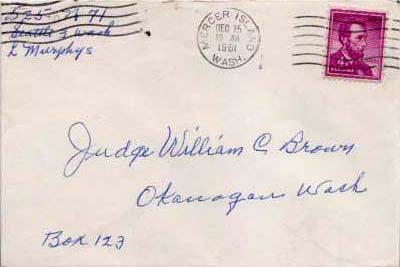 525 N 71
Seattle Wash
L Murphys
MERCER ISLAND
DEC 15
AM
1961
WASH.
Judge William C Brown
Okanogan Wash
Box 123